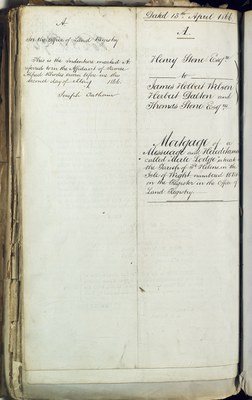 A.
In the Office of Land Registry
This is the Indenture marked A
referred to in the Affidavit of
Alfred sworn before me this
second day of May 1864.
Joseph
Dated 13th April 1864
A.
Henry Stone Esqre
to
James Holbert Wilson
Herbert Dalton and
Thomas Stone Esqrs
Mortgage of a
Messuage and Hereditaments
called Mede Lodge situate in
the Parish of St Helens in the
Isle of Wight numbered
on the Register in the Office of
Land Registry